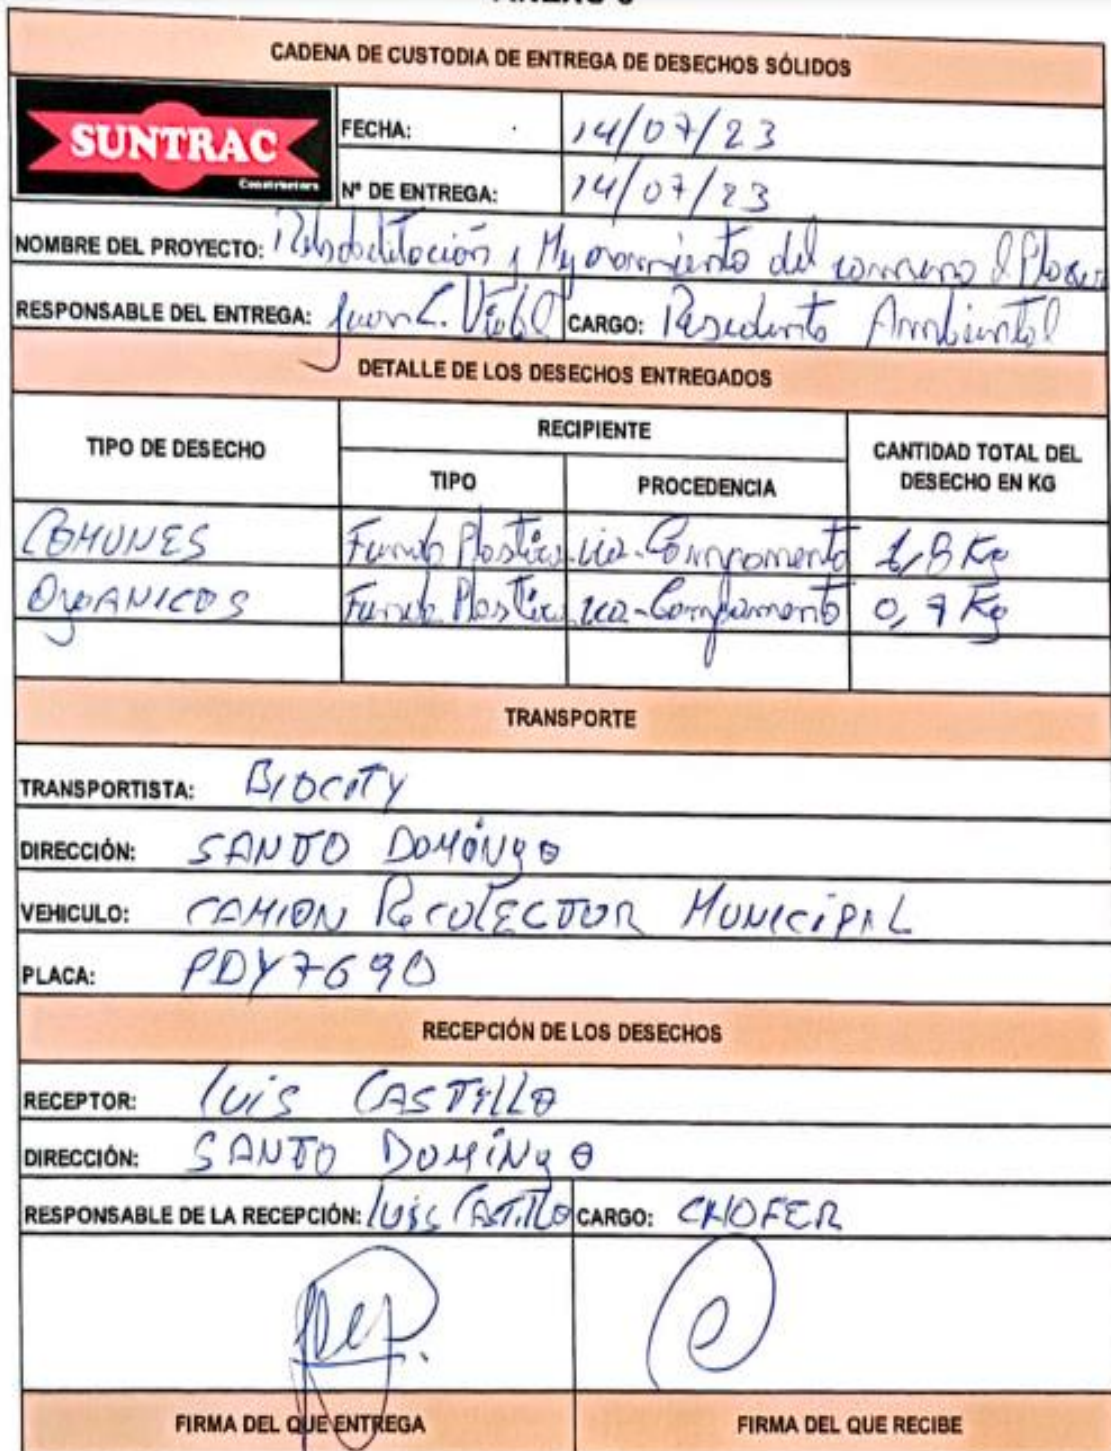 CADENA DE CUSTODIA DE ENTREGA DE DESECHOS SÓLIDOS
SUNTRAC
Constructora
FECHA: 14/07/23
Nº DE ENTREGA: 14/07/23
NOMBRE DEL PROYECTO: Rehabilitación y Mejoramiento del camino
RESPONSABLE DEL ENTREGA: Juan C. CARGO: Residente Ambiental
DETALLE DE LOS DESECHOS ENTREGADOS
TIPO DE DESECHO RECIPIENTE CANTIDAD TOTAL DEL
TIPO PROCEDENCIA DESECHO EN KG
COMUNES Funda Plastica via-Campamento 1,8 Kg
OrgANICOS Funda Plastica via-Campamento 0, Kg
TRANSPORTE
TRANSPORTISTA: BIOCITY
DIRECCIÓN: SANTO DOMINgO
VEHICULO: CAMION RecOLECTOR MUNICIPAL
PLACA: PDY7690
RECEPCIÓN DE LOS DESECHOS
RECEPTOR: LUIS CASTILLO
DIRECCIÓN: SANTO DOMINgO
RESPONSABLE DE LA RECEPCIÓN: LUIS CASTILLO CARGO: CHOFER
FIRMA DEL QUE ENTREGA FIRMA DEL QUE RECIBE